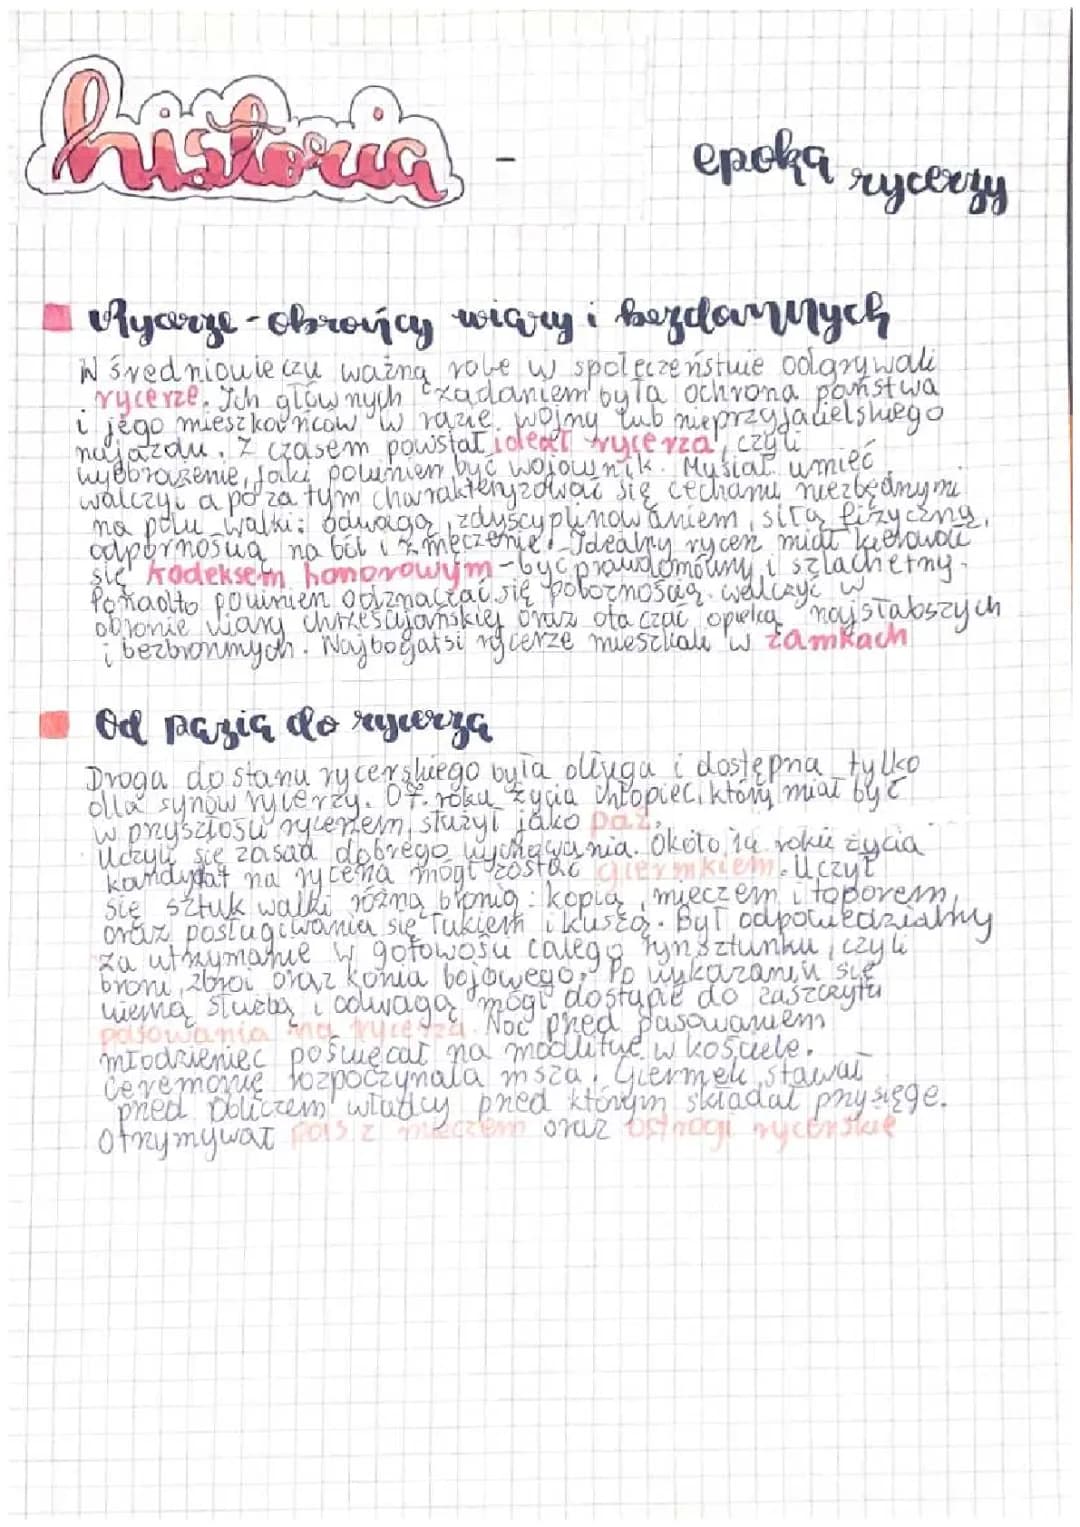 historia - epoka rycerzy
Rycerze - obrońcy wiary i bezdomnych
W średniowieczu ważną role w społeczeństwie odgrywali
rycerze. Ich głównych zadaniem była ochrona państwa
i jego mieszkońców w razie wojny lub nieprzyjacielskiego
najazdu. Z czasem powstał ideał rycerza, czyli
wyobrażenie, jaki powinien być wojownik. Musiał umieć
walczyć a poza tym charakteryzować się cechami niezbędnymi
na polu walki: odwagą, zdyscyplinowaniem, siłą fizyczną,
odpornością na ból i zmęczenie. Idealny rycerz miał kierować
się kodeksem honorowym - być prawdomówny i szlachetny.
Ponadto powinien odznaczać się pobożnością. walczyć w
obronie wiary chrześcijańskiej oraz otaczać opieką najsłabszych
i bezbronnych. Najbogatsi rycerze mieszkali w zamkach
Od pazia do rycerza
Droga do stanu rycerskiego była długa i dostępna tylko
dla synów rycerzy. Od 7. roku życia chłopiec, który miał być
w przyszłości rycerzem, służył jako paź.
Uczył się zasad dobrego wychowania. Około 14. roku życia
kandydat na rycerza mógł zostać giermkiem. Uczył
się sztuk walki różną bronią: kopią, mieczem i toporem,
oraz posługiwania się łukiem i kuszą. Był odpowiedzialny
za utrzymanie w gotowości całego rynsztunku, czyli
broni, zbroi oraz konia bojowego. Po wykazaniu się
wierną służbą i odwagą mógł dostąpić do zaszczytu
pasowania na rycerza. Noc przed pasowaniem
młodzieniec poświęcał na modlitwę w kościele.
Ceremonię rozpoczynała msza. Giermek stawał
przed obliczem władcy przed którym składał przysięgę.
Otrzymywał pas z mieczem oraz ostrogi rycerskie